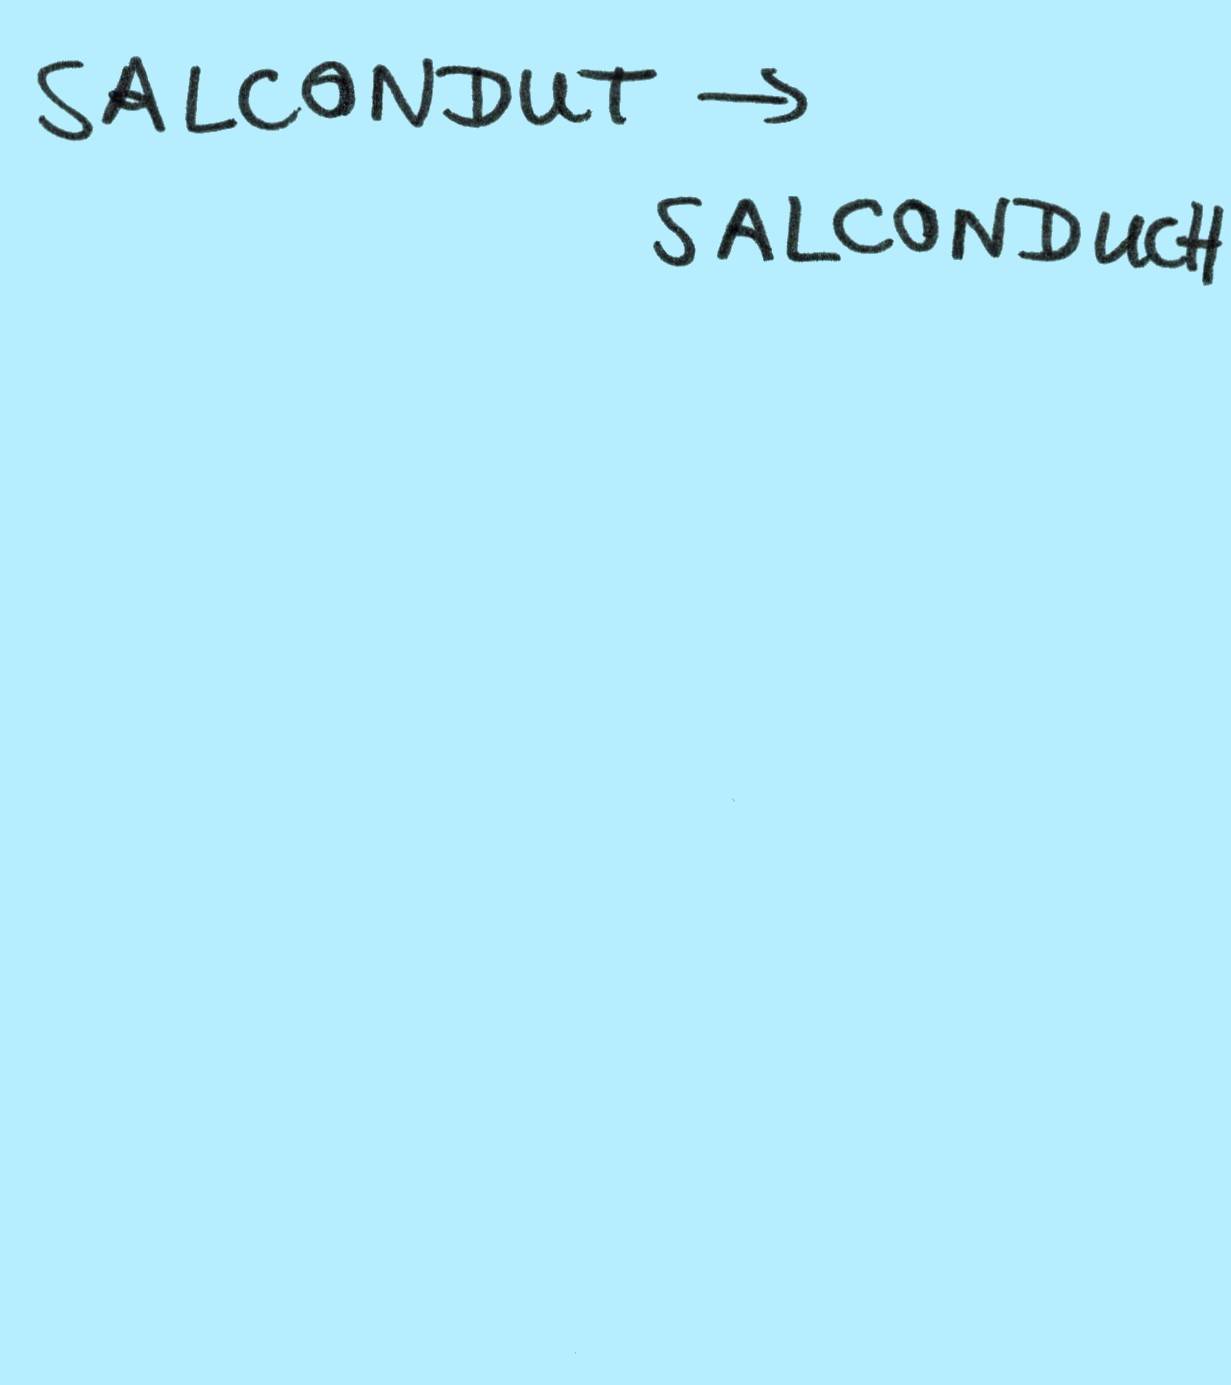 SALCONDUT →
SALCONDUCH